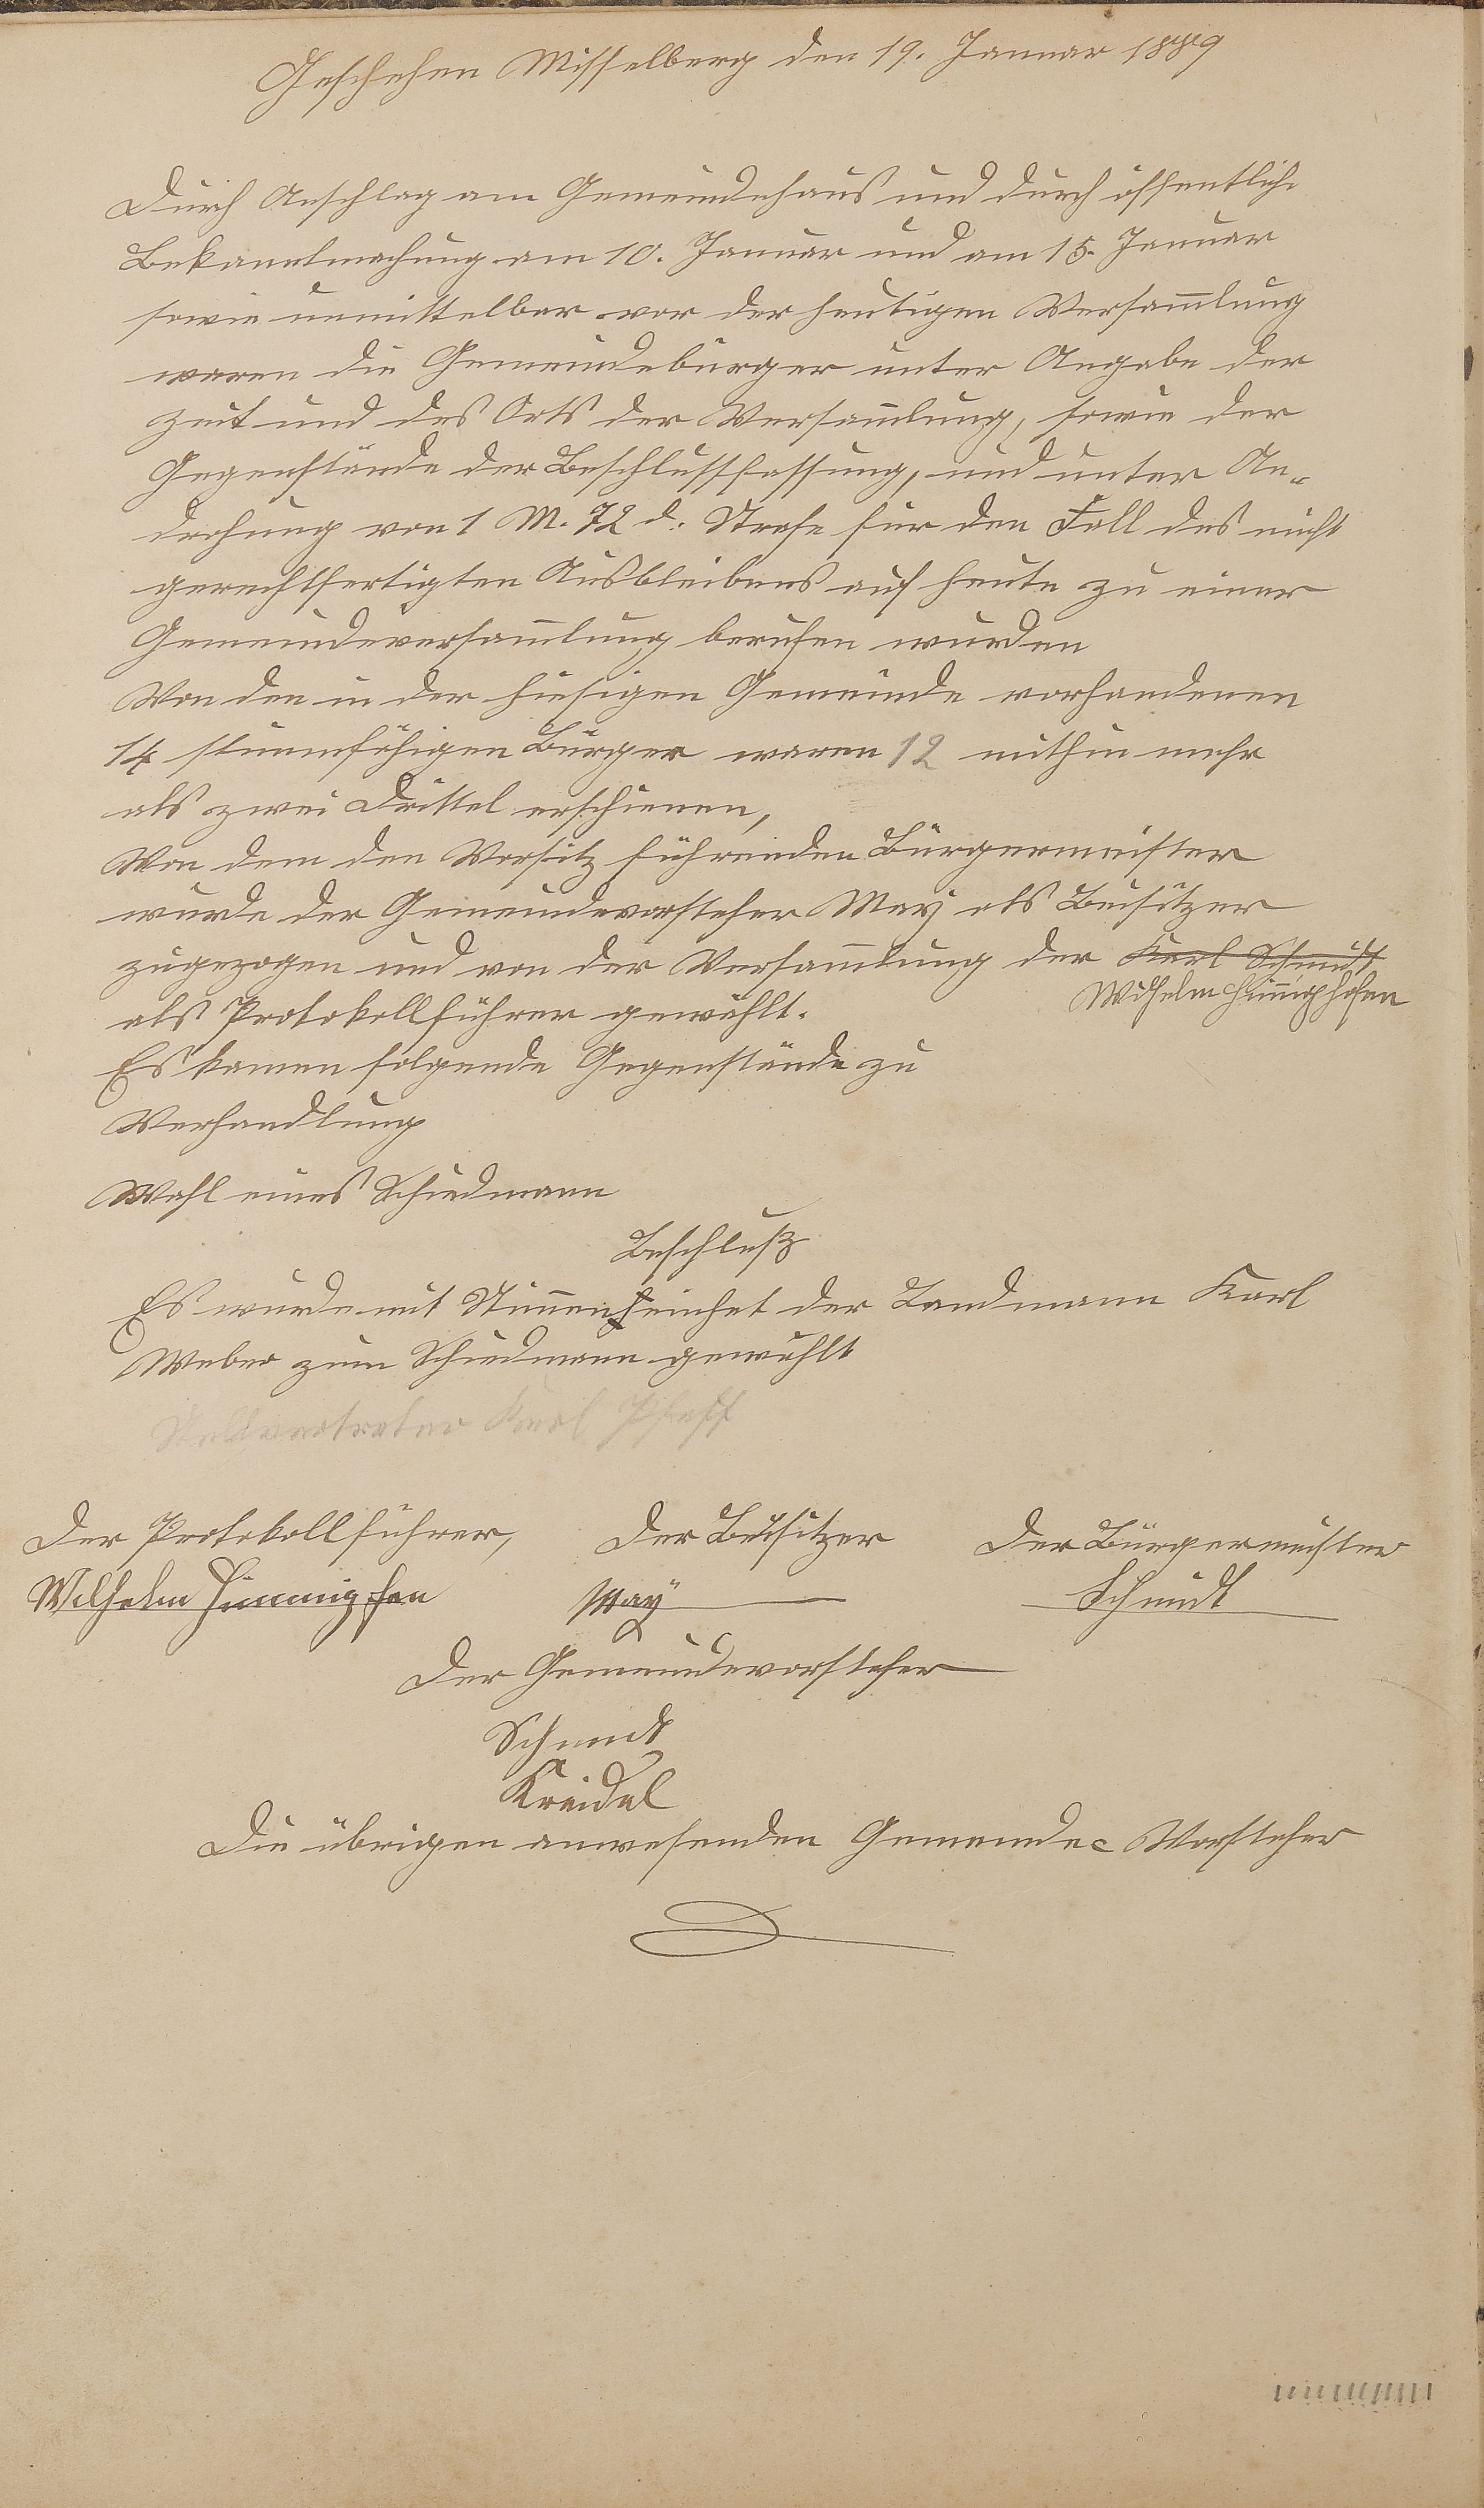 Geschehen Misselberg den 19. Januar 1889
Durch Anschlag am Gemeindehaus und durch öffentliche
Bekanntmachung am 10. Januar und am 15. Januar
sowie unmittelbar vor der heutigen Versam̅lung
waren die Gemeindebürger unter Angabe der
Zeit und des Orts der Versam̅lung, sowie der
Gegenstände der Beschlussfassung, und unter An-
drohung von 1 M. 72 d. Strafe für den Fall des nicht
gerechtfertigten Ausbleibens auf heute zu einer
Gemeindeversam̅lung berufen wurden
Von den in der hiesigen Gemeinde vorhandenen
14 stimmfähigen Bürger waren 12 mithin mehr
als zwei Drittel erschienen,
Von dem den Vorsitz führenden Bürgermeister
wurde der Gemeindevorsteher May als Beisitzer
zugezogen und von der Versam̅lung der Karl Schmidt
Wilhelm Hinnighofen
als Protokollführer gewählt.
Es kamen folgende Gegenstände zu
Verhandlung
Wahl eines Schiedmann
Beschluß
Es wurde mit Stim̅en einhet der Landmann Karl
Weber zum Schiedmann gewählt
Stellvertreter Karl Pfaff
Der Protokollführer, Der Beisitzer Der Bürgermeister
Wilhelm Hinnighofen May Schmidt
Der Gemeindevorsteher
Schmidt
Kreidel
Die übrigen anwesenden Gemeinde Vorsteher